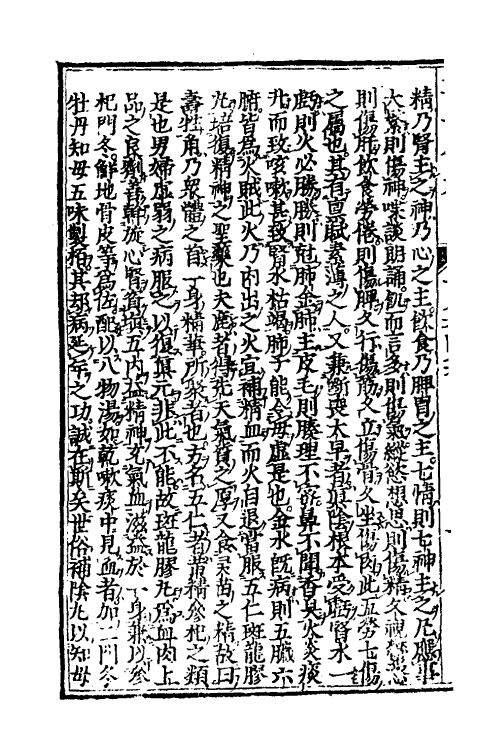 精乃腎主之神乃心之主飮食乃脾胃之主七情則七神主之凡應事
大繁則傷神喋談朗誦飢而言多則傷氣縱慾想思則傷精久視傷心
則傷肝飮食勞倦則傷脾久行傷筋久立傷骨久坐傷肉此五勞七傷
之屬也其有稟賦素薄之人又兼斷喪太早者眞陰根本受虧腎水一
虧則火必勝勝則尅肺金肺主皮毛則腠理不密鼻不聞香臭火炎痰
升而致咳嗽甚致腎水枯竭肺子能令母虛是也金水旣病則五臟六
腑皆爲火賊此火乃內出之火宜補精血而火自退當服五仁斑龍膠
丸培復精神之聖藥也夫鹿者得先天氣質之厚又食灵苗之精故曰
壽牲角乃衆體之首一身精華所聚者也五名五仁者黃精參杞之類
是也男婦虛弱之病服之以復眞元非此不能故斑龍膠丸爲血肉上
品之良劑善斡旋心腎眞塡五內益精神充氣血滋益於一身兼以參
杞門冬鮮地骨皮等爲佐配以八物湯如乾嗽痰中見血者加二門冬
牡丹知母五味製栢其却病延年之功誠在斯矣世俗補陰丸以知母